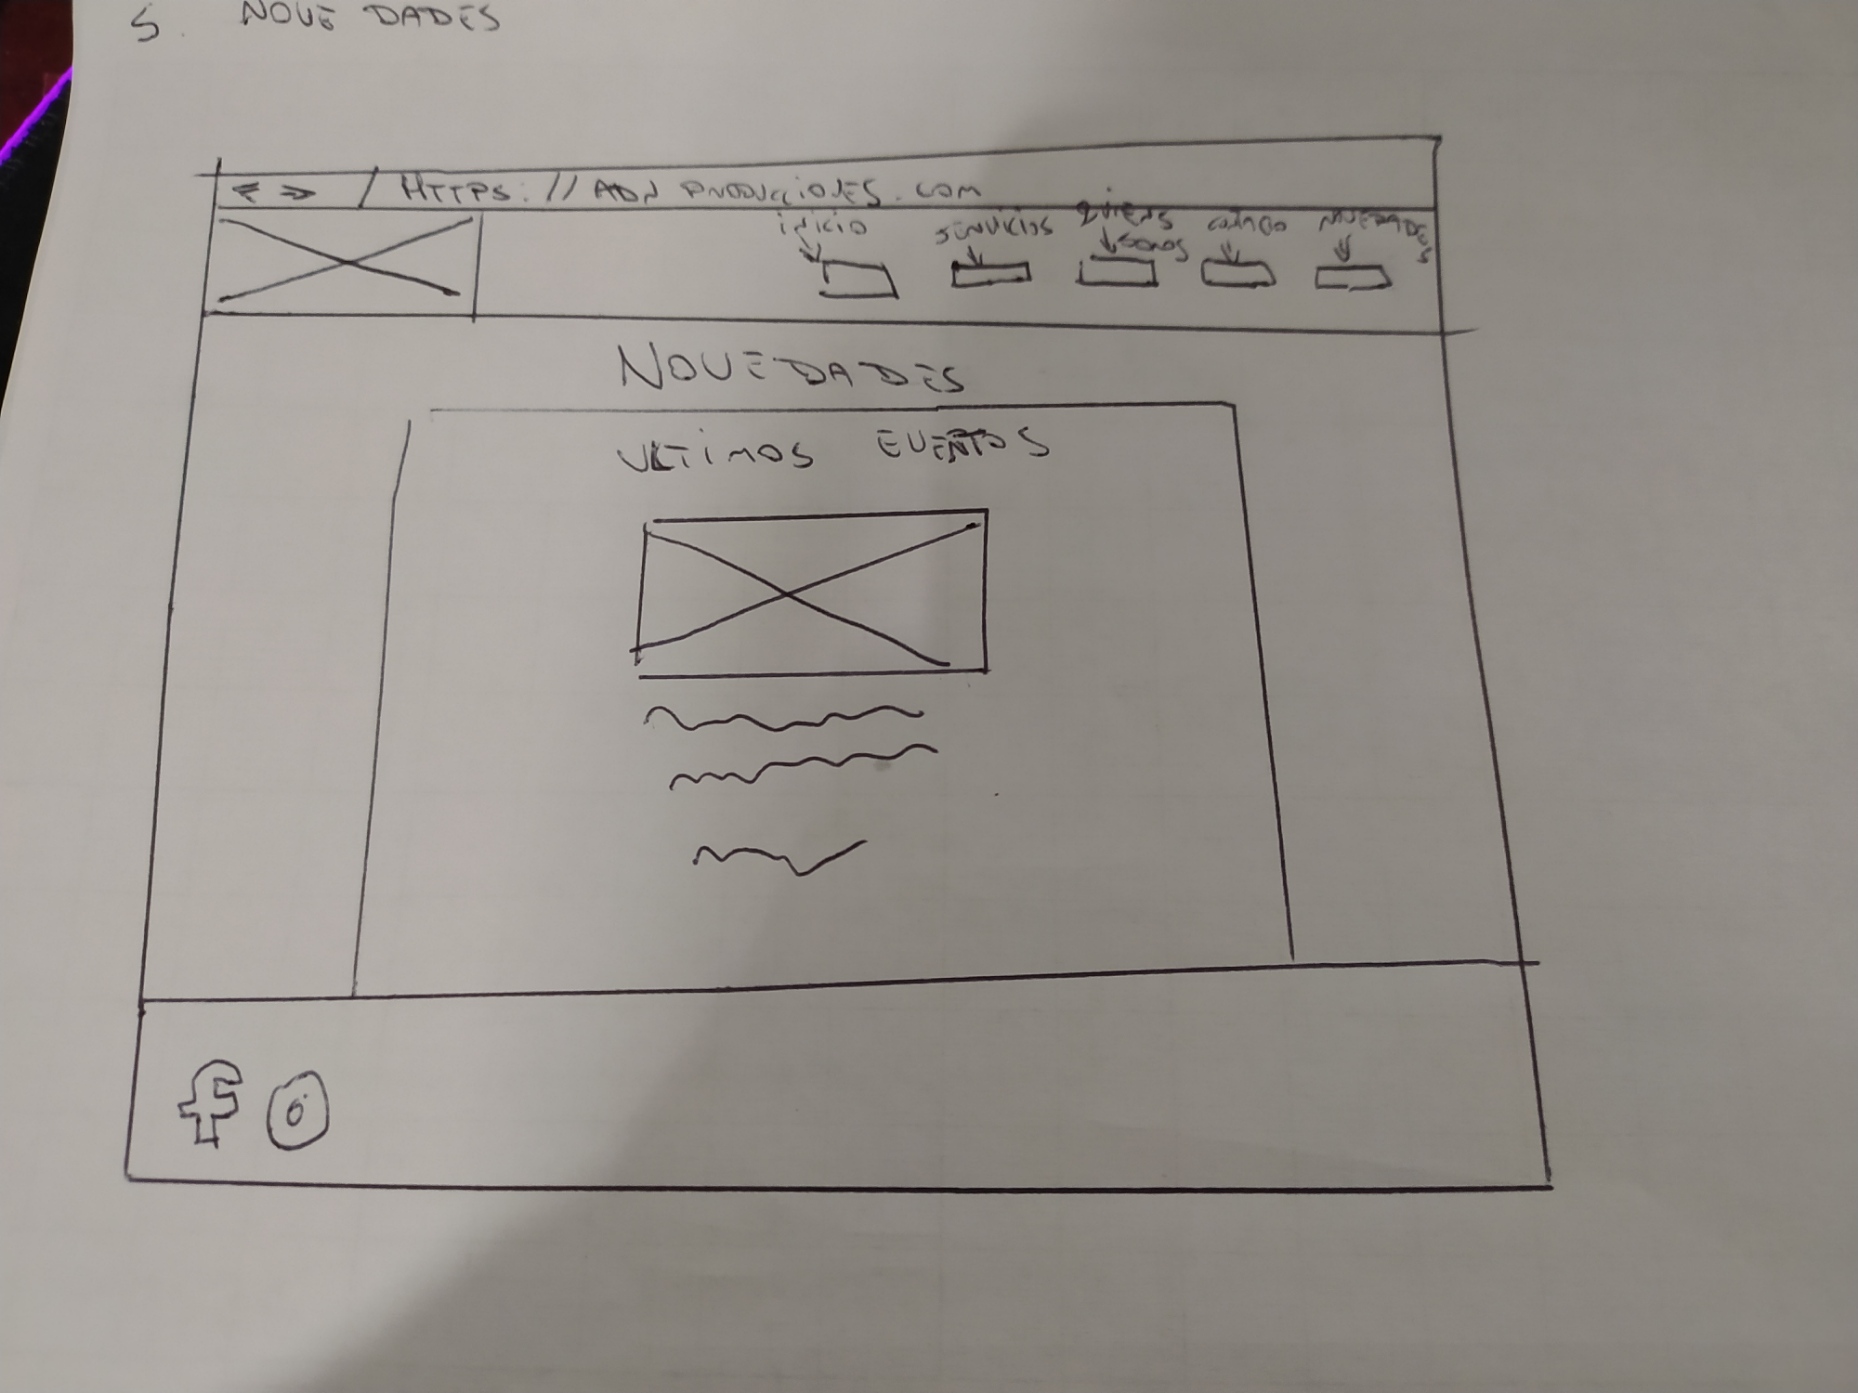 5. NOVEDADES
HTTPS://ADN PRODUCCIONES.COM
inicio
SERVICIOS
QUIENS SOMOS
NOVEDADES
NOVEDADES
ULTIMOS EVENTOS
f